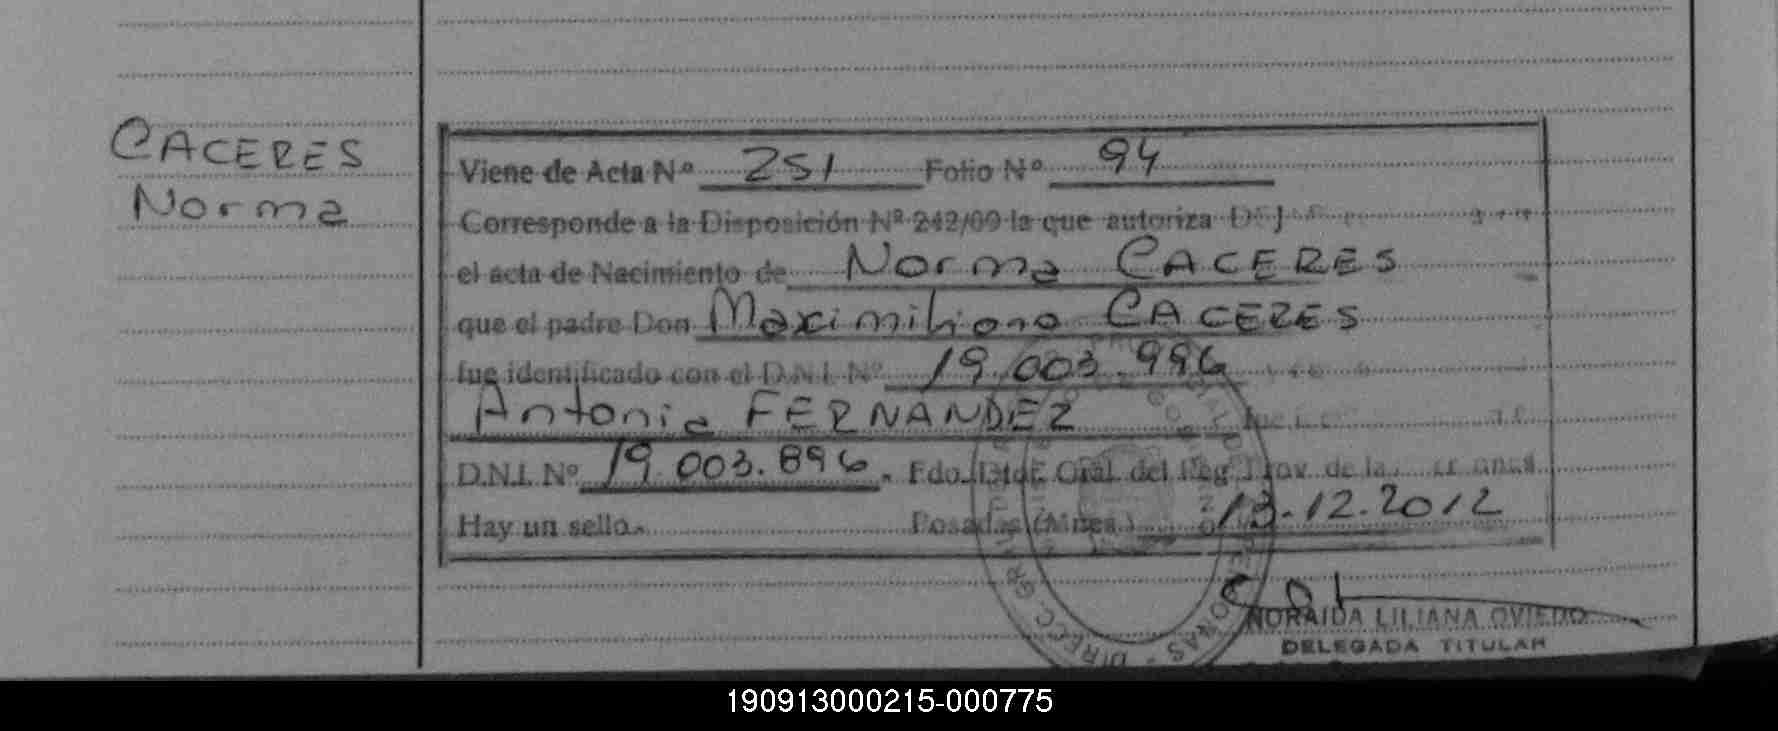 CACERES
Norma
Viene de Acta Nº 251 Folio Nº 94
Corresponde a la Disposición Nº 242/09 la que autoriza
el acta de Nacimiento de Norma CACERES
que el padre Don Maximiliano CACERES
fue identificado con el D.N.I. Nº 19.003.996
Antonia FERNANDEZ
D.N.I. Nº 19.003.896. Fdo. Gral. del Reg. Prov. de las
Hay un sello. Posadas (Mnes.) 13.12.2012
NORAIDA LILIANA OVIEDO
DELEGADA TITULAR
190913000215-000775